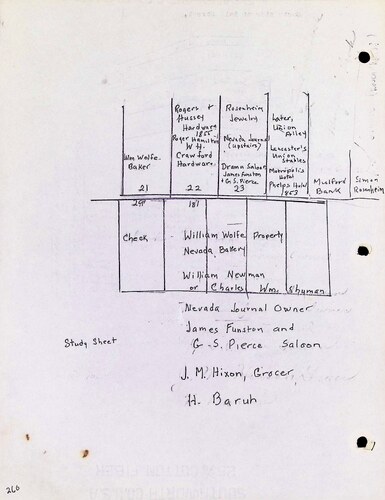 Wm Wolfe.
Baker
21
Rogers +
Hussey
Hardware
1855
Roger Hamilton
W H.
Crawford
Hardware.
22
Rosenheim
Jewelry
Nevada Journal
(upstairs)
Drama Saloon
James Funston
+ G. S. Pierce
23
Later,
Union
Alley
Leacester's
Union
Stables
Metropolis
Hotel
Phelps Hotel
1853
Mulford
Bank
Simon
Rosenheim
Cheek
187
William Wolfe Property
Nevada Bakery
William Newman
or Charles Wm. Shuman
Nevada Journal Owner
James Funston and
G. S. Pierce Saloon
Study Sheet
J. M. Hixon, Grocer
H. Baruh
260